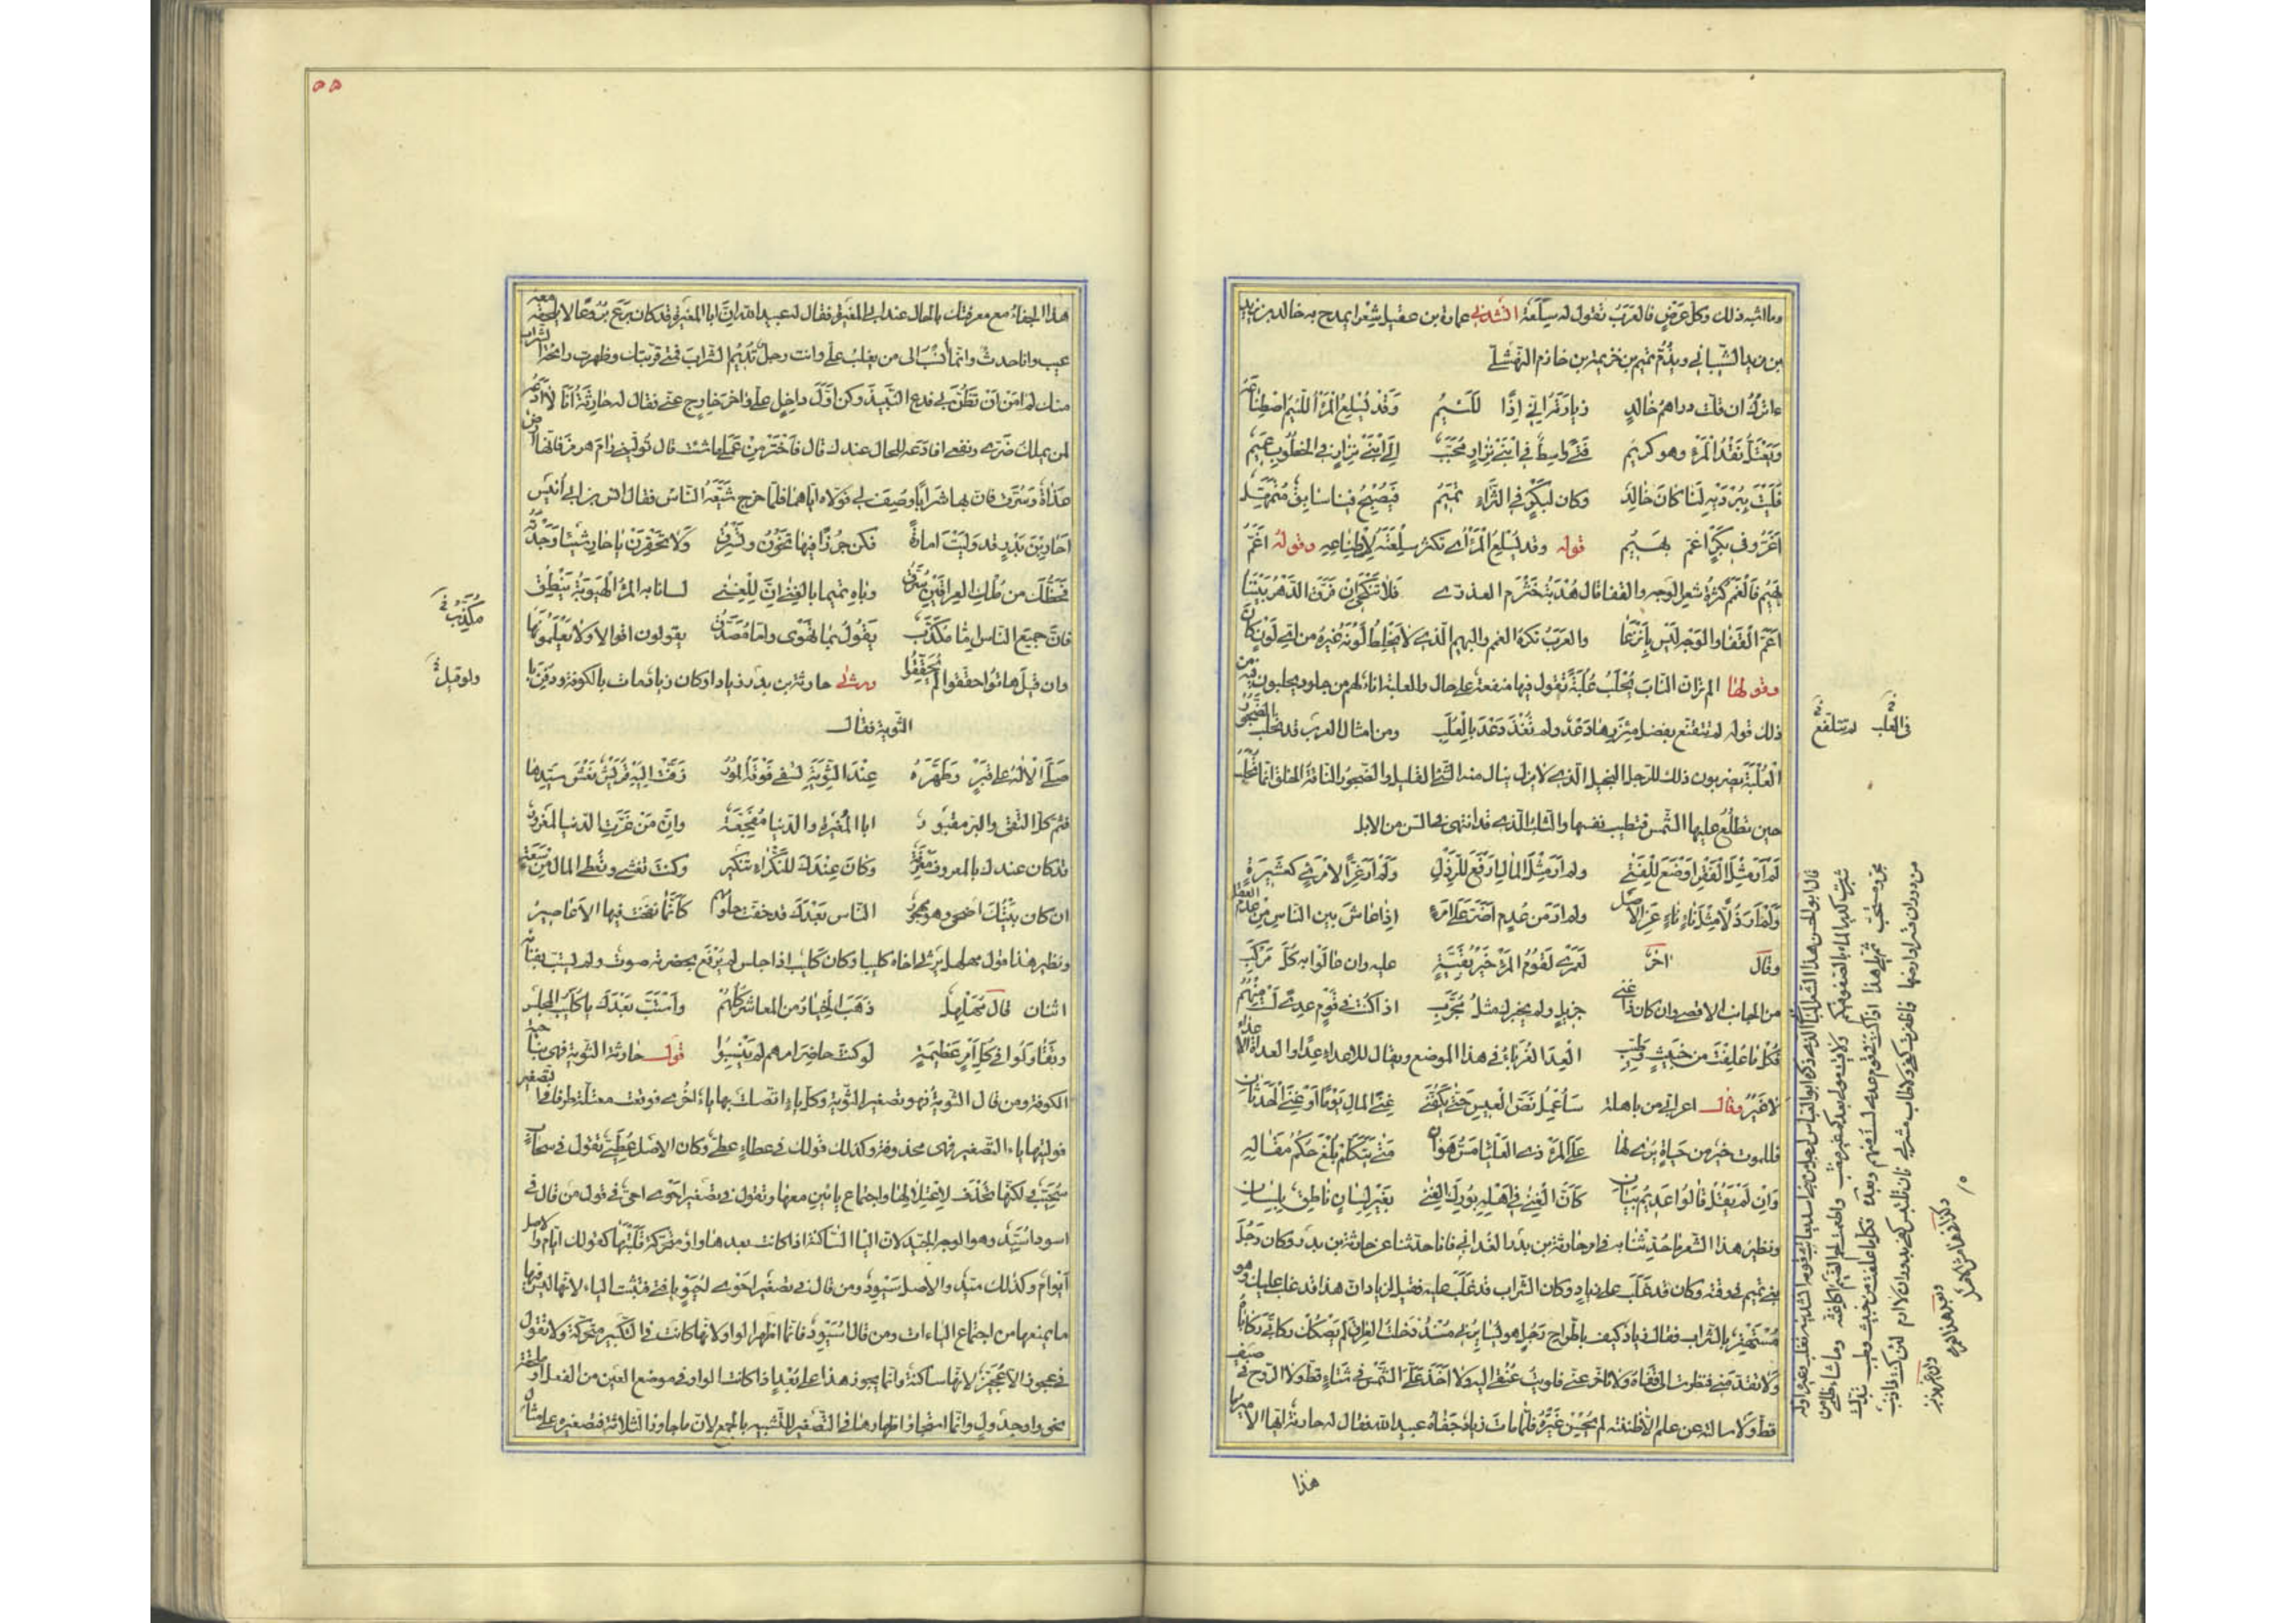 وما اشبه ذلك وكل عرض فالعرب تقول له سلعة انشدني عمارة بن عقيل شعرا يمدح به خالد بن يزيد
بن مزيد الشيباني ويذم تميم بن خزيمة بن خازم النهشلي
ءاترك ان قلت دراهم خالد زيارته اني اذا للئيم وقد يسلع المرء اللئيم اصطناعه
ويعتل نقد المرء وهو كريم فتى واسط في ابني نزار محبب الى ابني نزار في الخطوب عميم
فليت ببرديه لنا كان خالد وكان لبكر في الثراء تميم فيصبح فينا سابق متمهل
اغر وفي بكر اغم بهيم قوله وقد يسلع المرء اي تكثر سلعته لاصطناعه وقوله اغم
بهيم فالغمم كثرة شعر الوجه والقفا قال هدبة بن خشرم العذري فلا تنكحي ان فرق الدهر بيننا
اغم القفا والوجه ليس بانزعا والعرب تكره الغمم والبهيم الذي لا يخالط لونه غيره من اي لون كان
وقولها المر تزان الناب تحلب علبة تقول فيها منفعة على حال والعلبة اناء لهم من جلود يحلبون فيه من
ذلك قوله لم تتقنع بفضل مئزرها دعد ولم تغذ دعد بالعلب ومن امثال العرب قد تحلب الضجور
العلبة يضربون ذلك للرجل البخيل الذي لا يزال ينال منه الشئ القليل والضجور الناقة السيئة الخلق انما تحلب
حين تطلع عليها الشمس فتطيب نفسها والثاب الذي قد انتهى في السن من الابل
لم ار مثل الفقر اوضع للفتى ولم ار مثل المال ارفع للرذل ولم ار عزا لامرئ كعشيرة
ولم ار ذلا مثل ناء عن الاصل ولم ار من عدم اضر على امرئ اذا عاش بين الناس من عدم العقل
وقال اخر لعمري لقوم المرء خير بقية عليه وان عالوا به كل مركب
من الجانب الاقصى وان كان ذا غنى جزيل ولم يخبرك مثل مجرب اذا كنت في قوم عدى لست منهم
فكل ما علفت من خبيث وطيب العدا الغرباء في هذا الموضع ويقال للاعداء عدا والعداة الاعداء
لا غير وقال اعرابي من باهلة ساعمل نص العيس حتى يكفني غنى المال يوما او غنى الحدثان
فللموت خير من حياة يرى لها على المرء ذي العلياء مس هوان متى يتكلم يلغ حكم مقاله
وان لم يقل قالوا عديم بيان كان الغنى في اهله بورك الغنى بغير لسان ناطق بلسان
ونظير هذا الشعر ما حدثنا به في امر حارثة بن بدر الغداني فانا حدثنا عن حارثة بن بدر وكان رجل
بني تميم في وقته وكان قد غلب على زياد وكان الشراب قد غلب عليه فقيل لزياد ان هذا قد غلب عليك وهو
مستهتر بالشراب فقال زياد كيف باطراح رجل هو يسايرني منذ دخلت العراق لم يصكك ركابي ركاباه
ولا تقدمني فنظرت الى قفاه ولا تاخر عني فلويت عنقي اليه ولا اخذ علي الشمس في شتاء قط ولا الروح في صيف
قط ولا سالته عن علم الا ظننته لم يحسن غيره فلما مات زياد جفاه عبيد الله فقال له حارثة ايها الامير ما
هذا
في العلب لم تتلفع
هذا الجفاء مع معرفتك بالحال عند ابي المغيرة فقال له عبيد الله ان ابا المغيرة قد كان برع بروعا لا يلحقه معه
عيب وانا حدث وانما انسب الى من يغلب علي وانت رجل تديم الشراب فمتى قربتك وظهرت رائحة الشراب
منك لم امن ان تظن بي فدع النبيذ وكن اول داخل علي واخر خارج عني فقال له حارثة انا لا ادعه
لمن يملك ضري ونفعي افادعه للحال عندك قال فاختر من عملي ما شئت قال توليني رام هرمز فانها ارض
عذاة وسرق فان بها شرابا وصيف لي فولاه اياهما فلما خرج شيعه الناس فقال انس بن ابي انيس
احار بن بدر قد وليت امارة فكن جرذا فيها تخون وتسرق ولا تحقرن يا حار شيئا وجدته
فحظك من ملك العراقين سرق وباه تميما بالغنى ان للغنى لسانا به المرء الهيوبة ينطق
فان جميع الناس اما مكذب يقول بما تهوى واما مصدق يقولون اقوالا ولا يعلمونها
وان قيل هاتوا حققوا لم يحققوا ورثى حارثة بن بدر زيادا وكان زياد مات بالكوفة ودفن با
الثوية فقال
صلى الاله على قبر وطهره عند الثوية يسفي فوقه المور زفت اليه قريش نعش سيدها
فثم كل التقى والبر مقبور ابا المغيرة والدنيا مفجعة وان من غرت الدنيا لمغرور
قد كان عندك بالمعروف معرفة وكان عندك للنكراء تنكير وكنت تغشى وتعطي المال من سعة
ان كان بيتك اضحى وهو مهجور الناس بعدك قد خفت حلومهم كانما نفخت فيها الاعاصير
ونظير هذا قول مهلهل يرثي اخاه كليبا وكان كليب اذا جلس لم يرفع بحضرته صوت ولم يستب بفنائه
اثنان قال مهلهل ذهب الخيار من المعاشر كلهم واستب بعدك يا كليب المجلس
وتقاولوا في كل امر عظيمة لو كنت حاضر امرهم لم ينبسوا قول حارثة الثوية فهي بناحية
الكوفة ومن قال الثوية فهو تصغير الثوية وكل ياء اتصلت بها ياء اخرى فوقعت معتلة طرفا في تصغير
فوليتها ياء التصغير فهي محذوفة وكذلك قولك في عطاء عطي وكان الاصل عطيي تقول في سحاب
سحيب لكنها تحذف لاعتلالها واجتماع يائين معها وتقول في تصغير احوى احي في قول من قال في
اسود اسيد وهو الوجه الجيد لان الياء الساكنة اذا كانت بعدها واو متحركة قلبتها كقولك ايام والاصل
ايوام وكذلك سيد والاصل سيود ومن قال في تصغير احوى احيو يا فتى فتثبت الياء لانها ليس فيها
ما يمنعها من اجتماع الياءات ومن قال اسيود فانما اظهر الواو لانها كانت في التكبير متحركة ولا تقول
في عجوز الا عجيز لانها ساكنة وانما يجوز هذا على بعد اذا كانت الواو في موضع العين من الفعل او ملحقة
نحو واو جدول وانما استجازوا اظهارها في التصغير للتشبيه بالجمع لان ما جاوز الثلاثة فتصغيره على مثال
مكذب
ولو قيل
٥٥